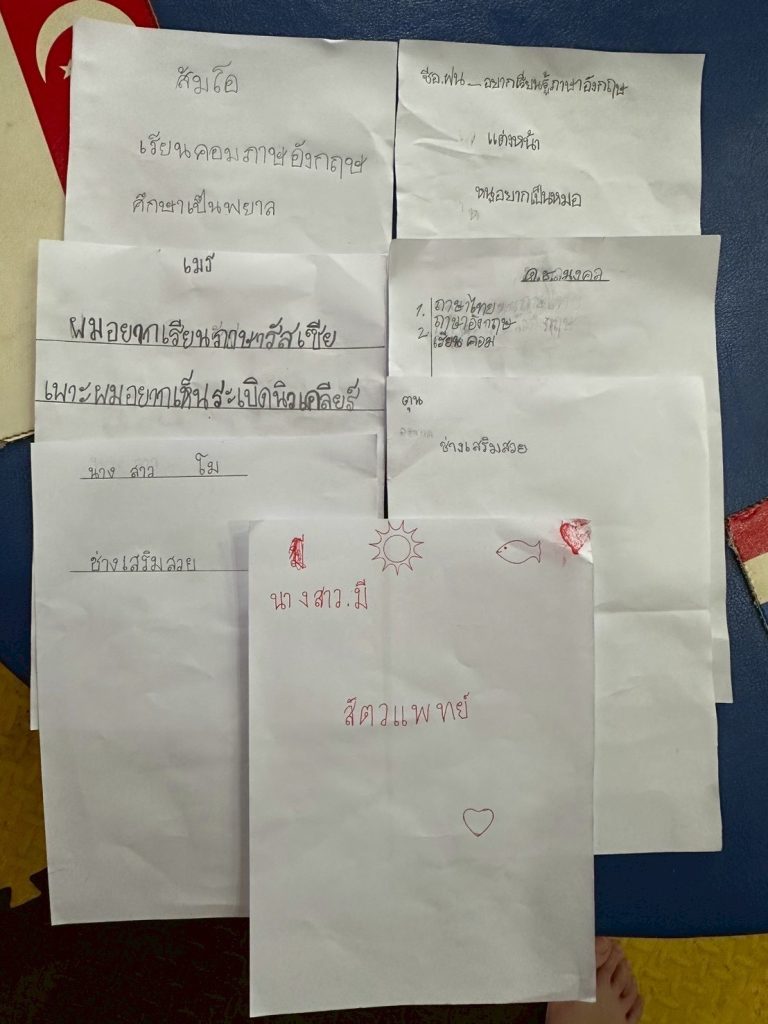 ส้มโอ
เรียนคอมภาษาอังกฤษ
ศึกษาเป็นพยาล
ชื่อ.ฝน - อยากเรียนรู้ภาษาอังกฤษ
แต่งหน้า
หนูอยากเป็นหมอ
เมธ
ผมอยากเรียนภาษารัสเซีย
เพาะผมอยากเห็นระเบิดนิวเคลียร์
ด.ช.มงคล
1. ภาษาไทย
2 ภาษาอังกฤษ
เรียนคอม
ตุน
ช่างเสริมสวย
นาง สาว โม
ช่างเสริมสวย
นางสาว.มี
สัตวแพทย์